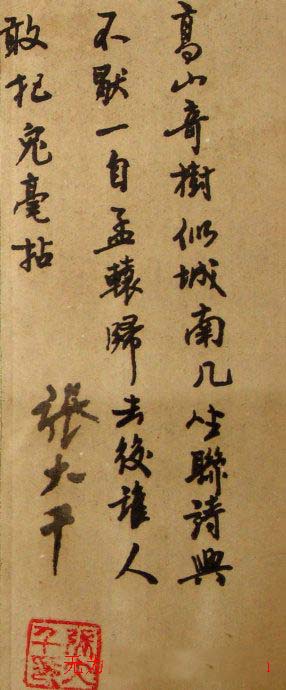 高山奇樹似城南几坐聯詩興
不厭一自孟轅歸去後誰人
敢把兔毫拈
張大千
張大千印
1